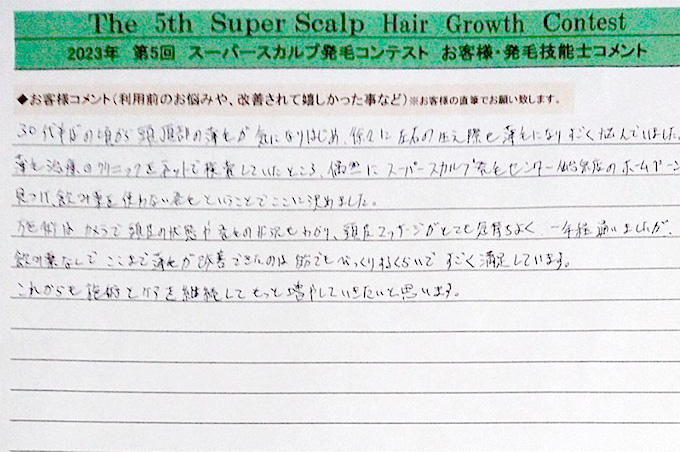 The 5th Super Scalp Hair Growth Contest
2023年 第5回 スーパースカルプ発毛コンテスト お客様・発毛技能士コメント
◆お客様コメント(利用前のお悩みや、改善されて嬉しかった事など)※お客様の直筆でお願い致します。
30代半ばの頃から頭頂部の薄毛が気になりはじめ、徐々に左右の生え際も薄毛になりすごく悩んでいました。
薄毛治療のクリニックをネットで検索していたところ、偶然にスーパースカルプ発毛センター 店のホームページ
見つけ、飲み薬を使わない発毛ということでここに決めました。
施術はカメラで頭皮の状態や発毛の状況もわかり、頭皮マッサージがとても気持ちよく、一年程通いましたが、
飲み薬なしでここまで薄毛が改善できたのは自分でもびっくりするくらいですごく満足しています。
これからも施術とケアを継続してもっと増やしていきたいと思います。